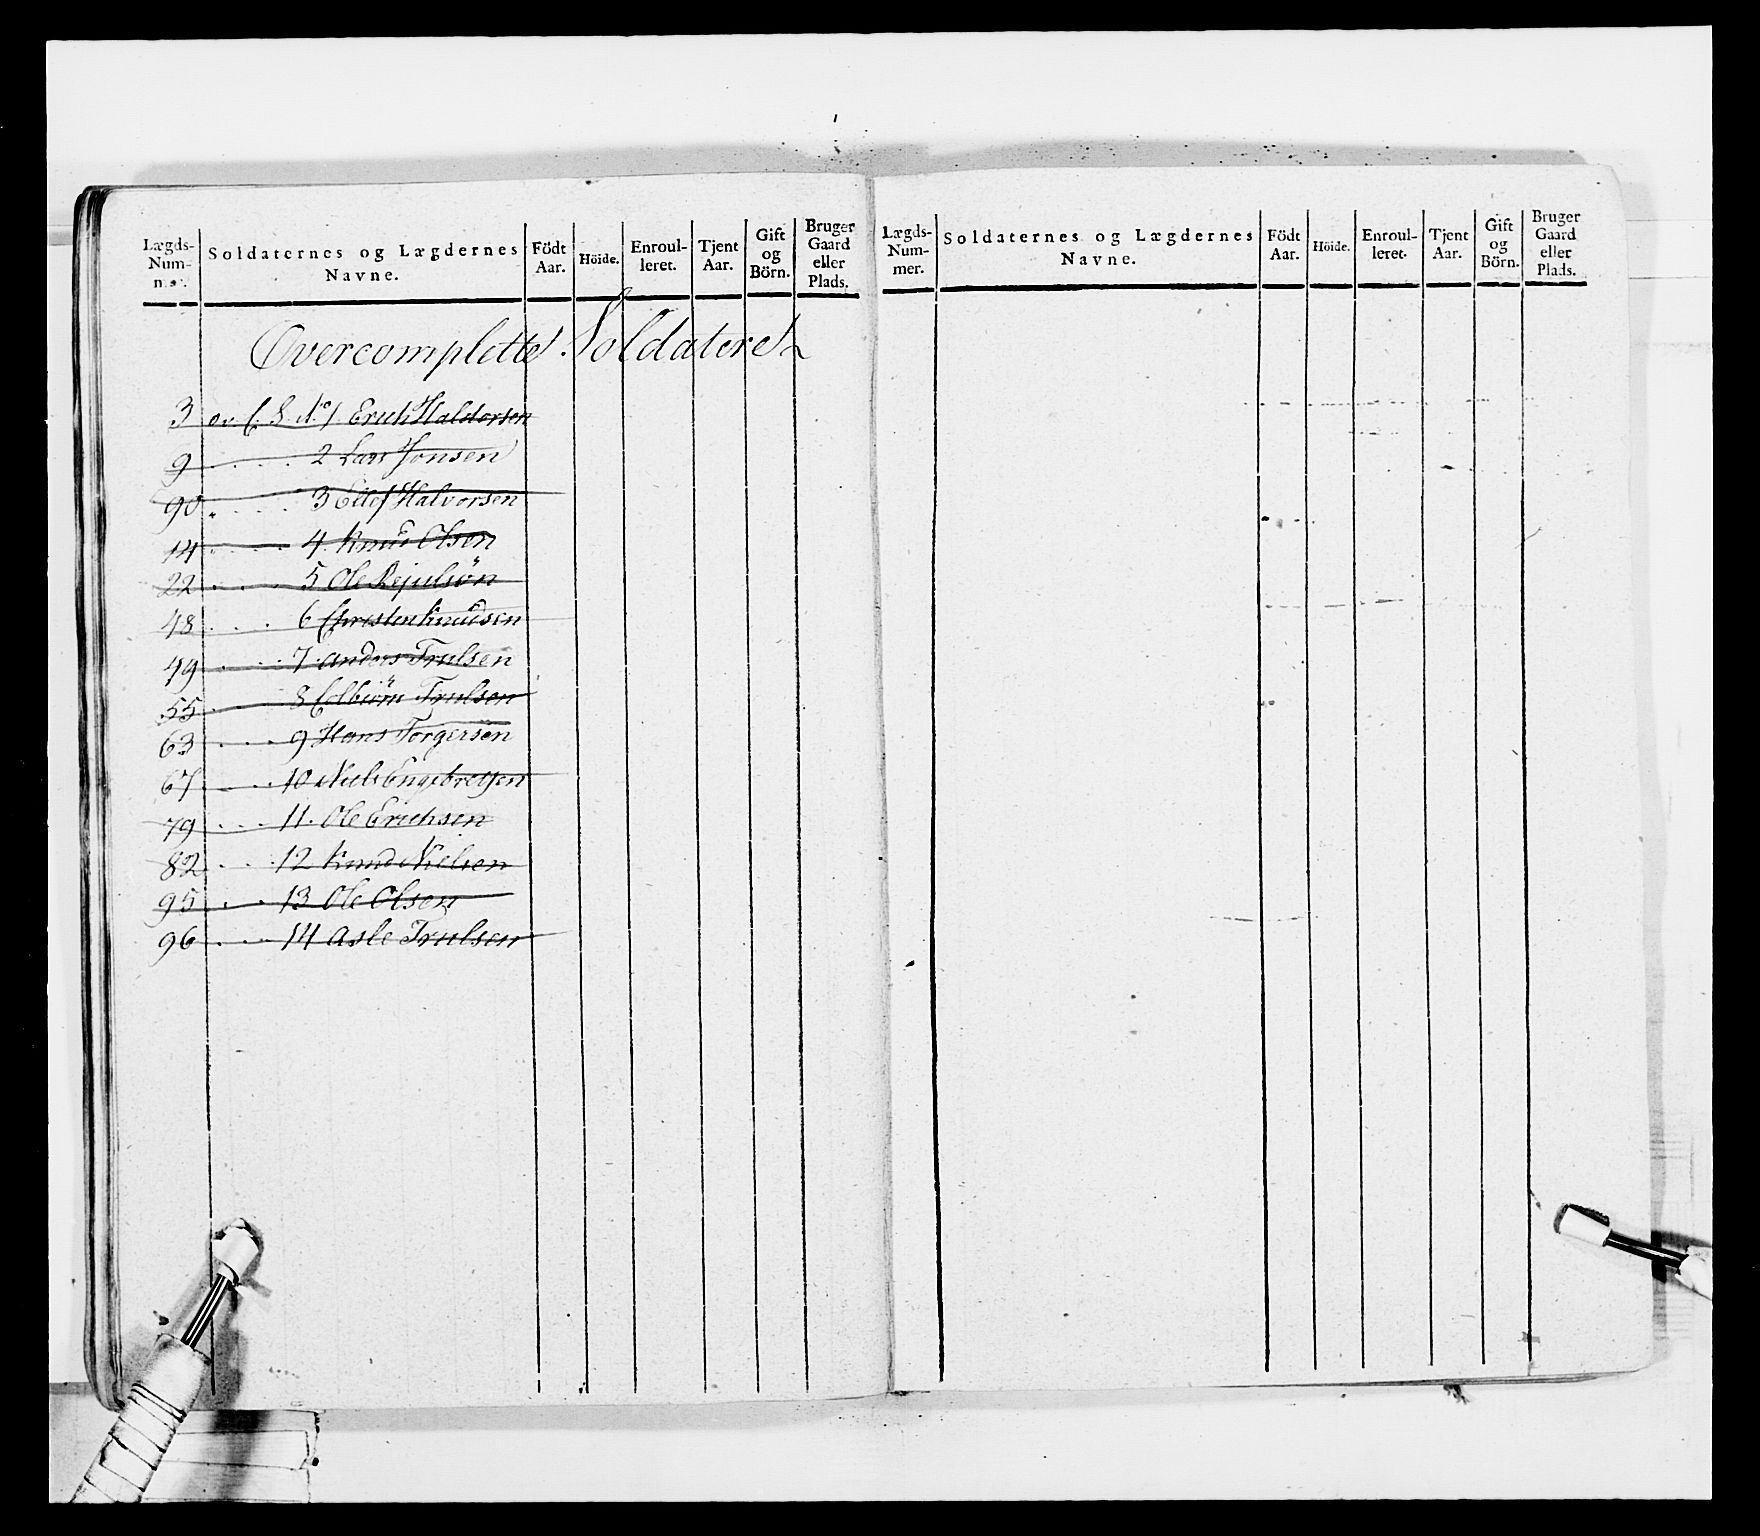 Lægds-Num-mer. Soldaternes og Lægdernes Navne. Födt Aar. Höide. Enroul-leret. Tjent Aar. Gift og Börn. Bruger Gaard eller Plads.
Overcomplette Soldatere
3 ov. C. S. No 1 Erich Haldorsen
9 2 Lars Jonsen
90 3 Ellef Halvorsen
14 4 Knud Olsen
22 5 Ole
48 6 Christen Knudsen
49 7 Anders Trulsen
55 8 Colbiörn Trulsen
63 9 Hans Torgersen
67 10 Niels Engebretsen
79 11. Ole Erichsen
82 12 Knud Nielsen
95 13 Ole Olsen
96 14 Asle Trulsen
Lægds-Num-mer. Soldaternes og Lægdernes Navne. Födt Aar. Höide. Enroul-leret. Tjent Aar. Gift og Börn. Bruger Gaard eller Plads.